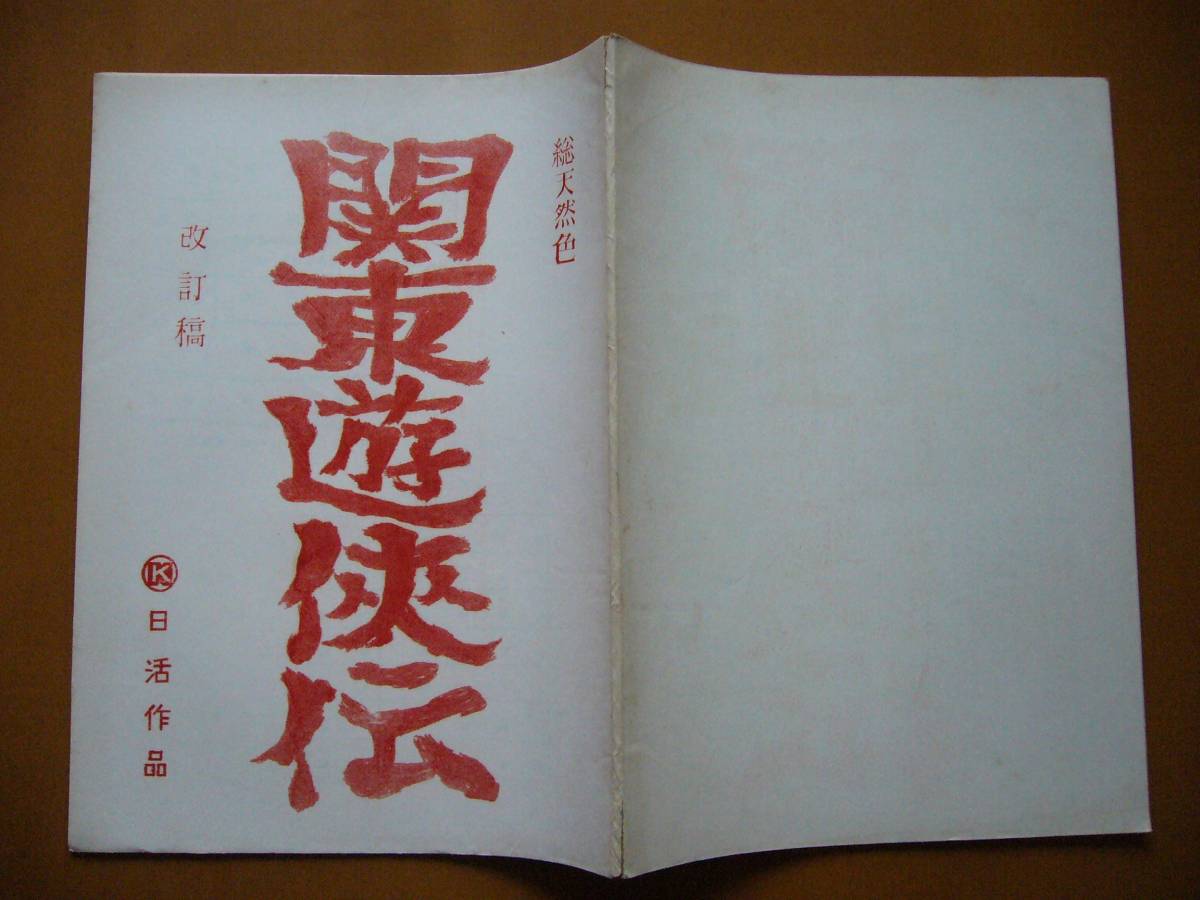 総天然色
関東遊侠伝
改訂稿
K 日活作品